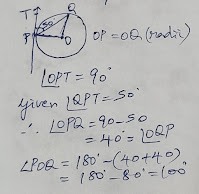 T Q
P 50 O OP = OQ (radii)
∠OPT = 90°
Given ∠QPT = 50°
∴ ∠OPQ = 90-50
= 40° = ∠OQP
∠POQ = 180° - (40+40)
= 180° - 80° = 100°